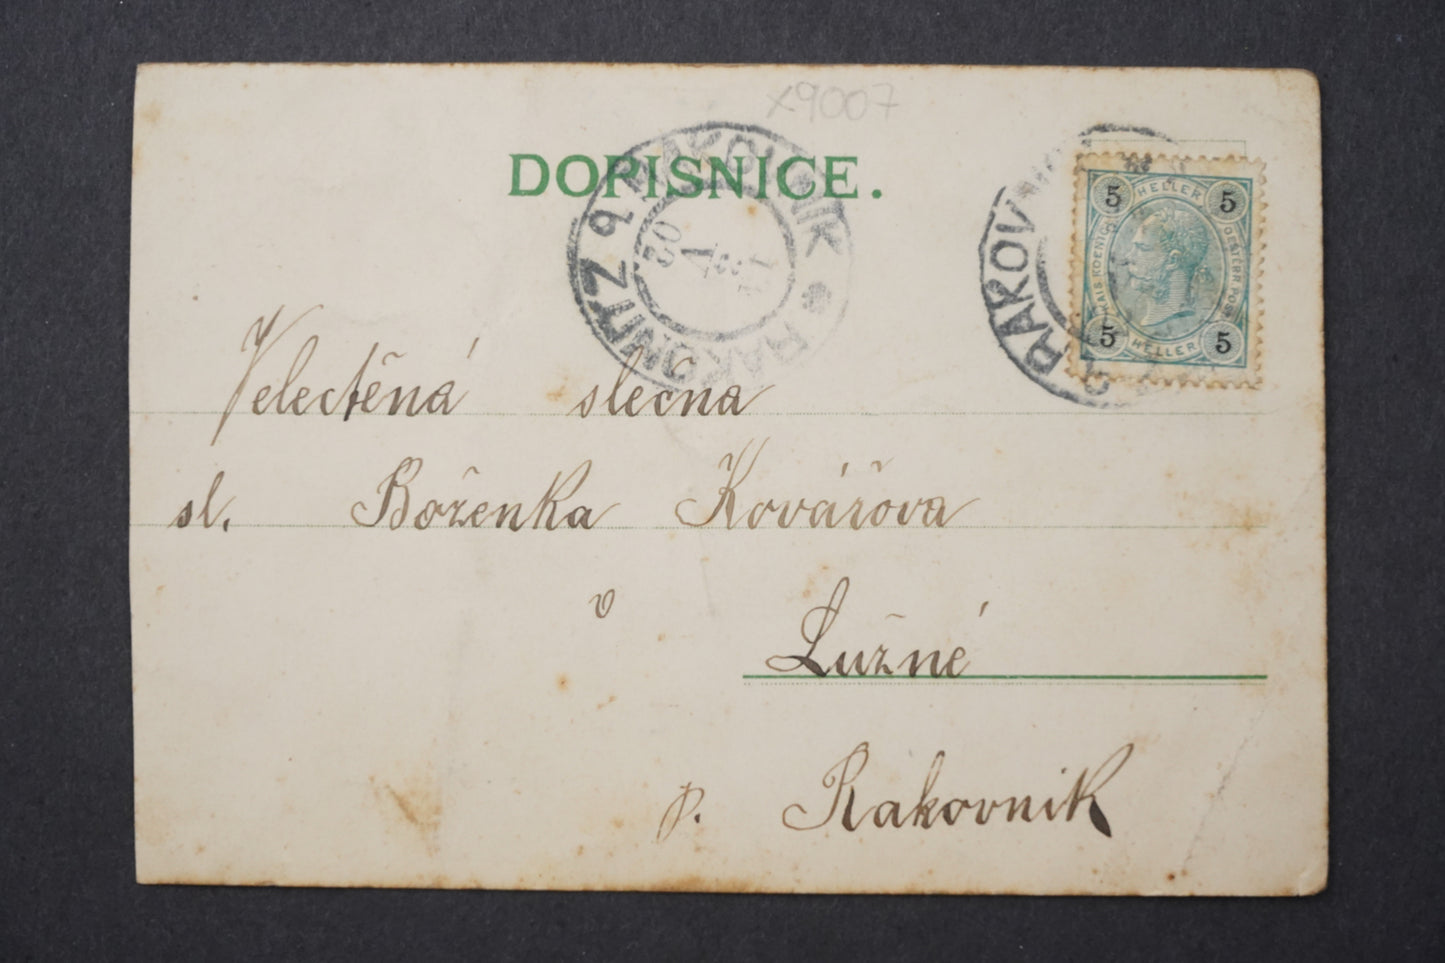 x9007
DOPISNICE.
RAKOVNIK * RAKONITZ
RAKOV
5 HELLER 5
KAIS. KOENIGL. OESTERR. POST
5 HELLER 5
Velectěná slečna
sl. Boženka Kovářova
v Lužné
p. Rakovník